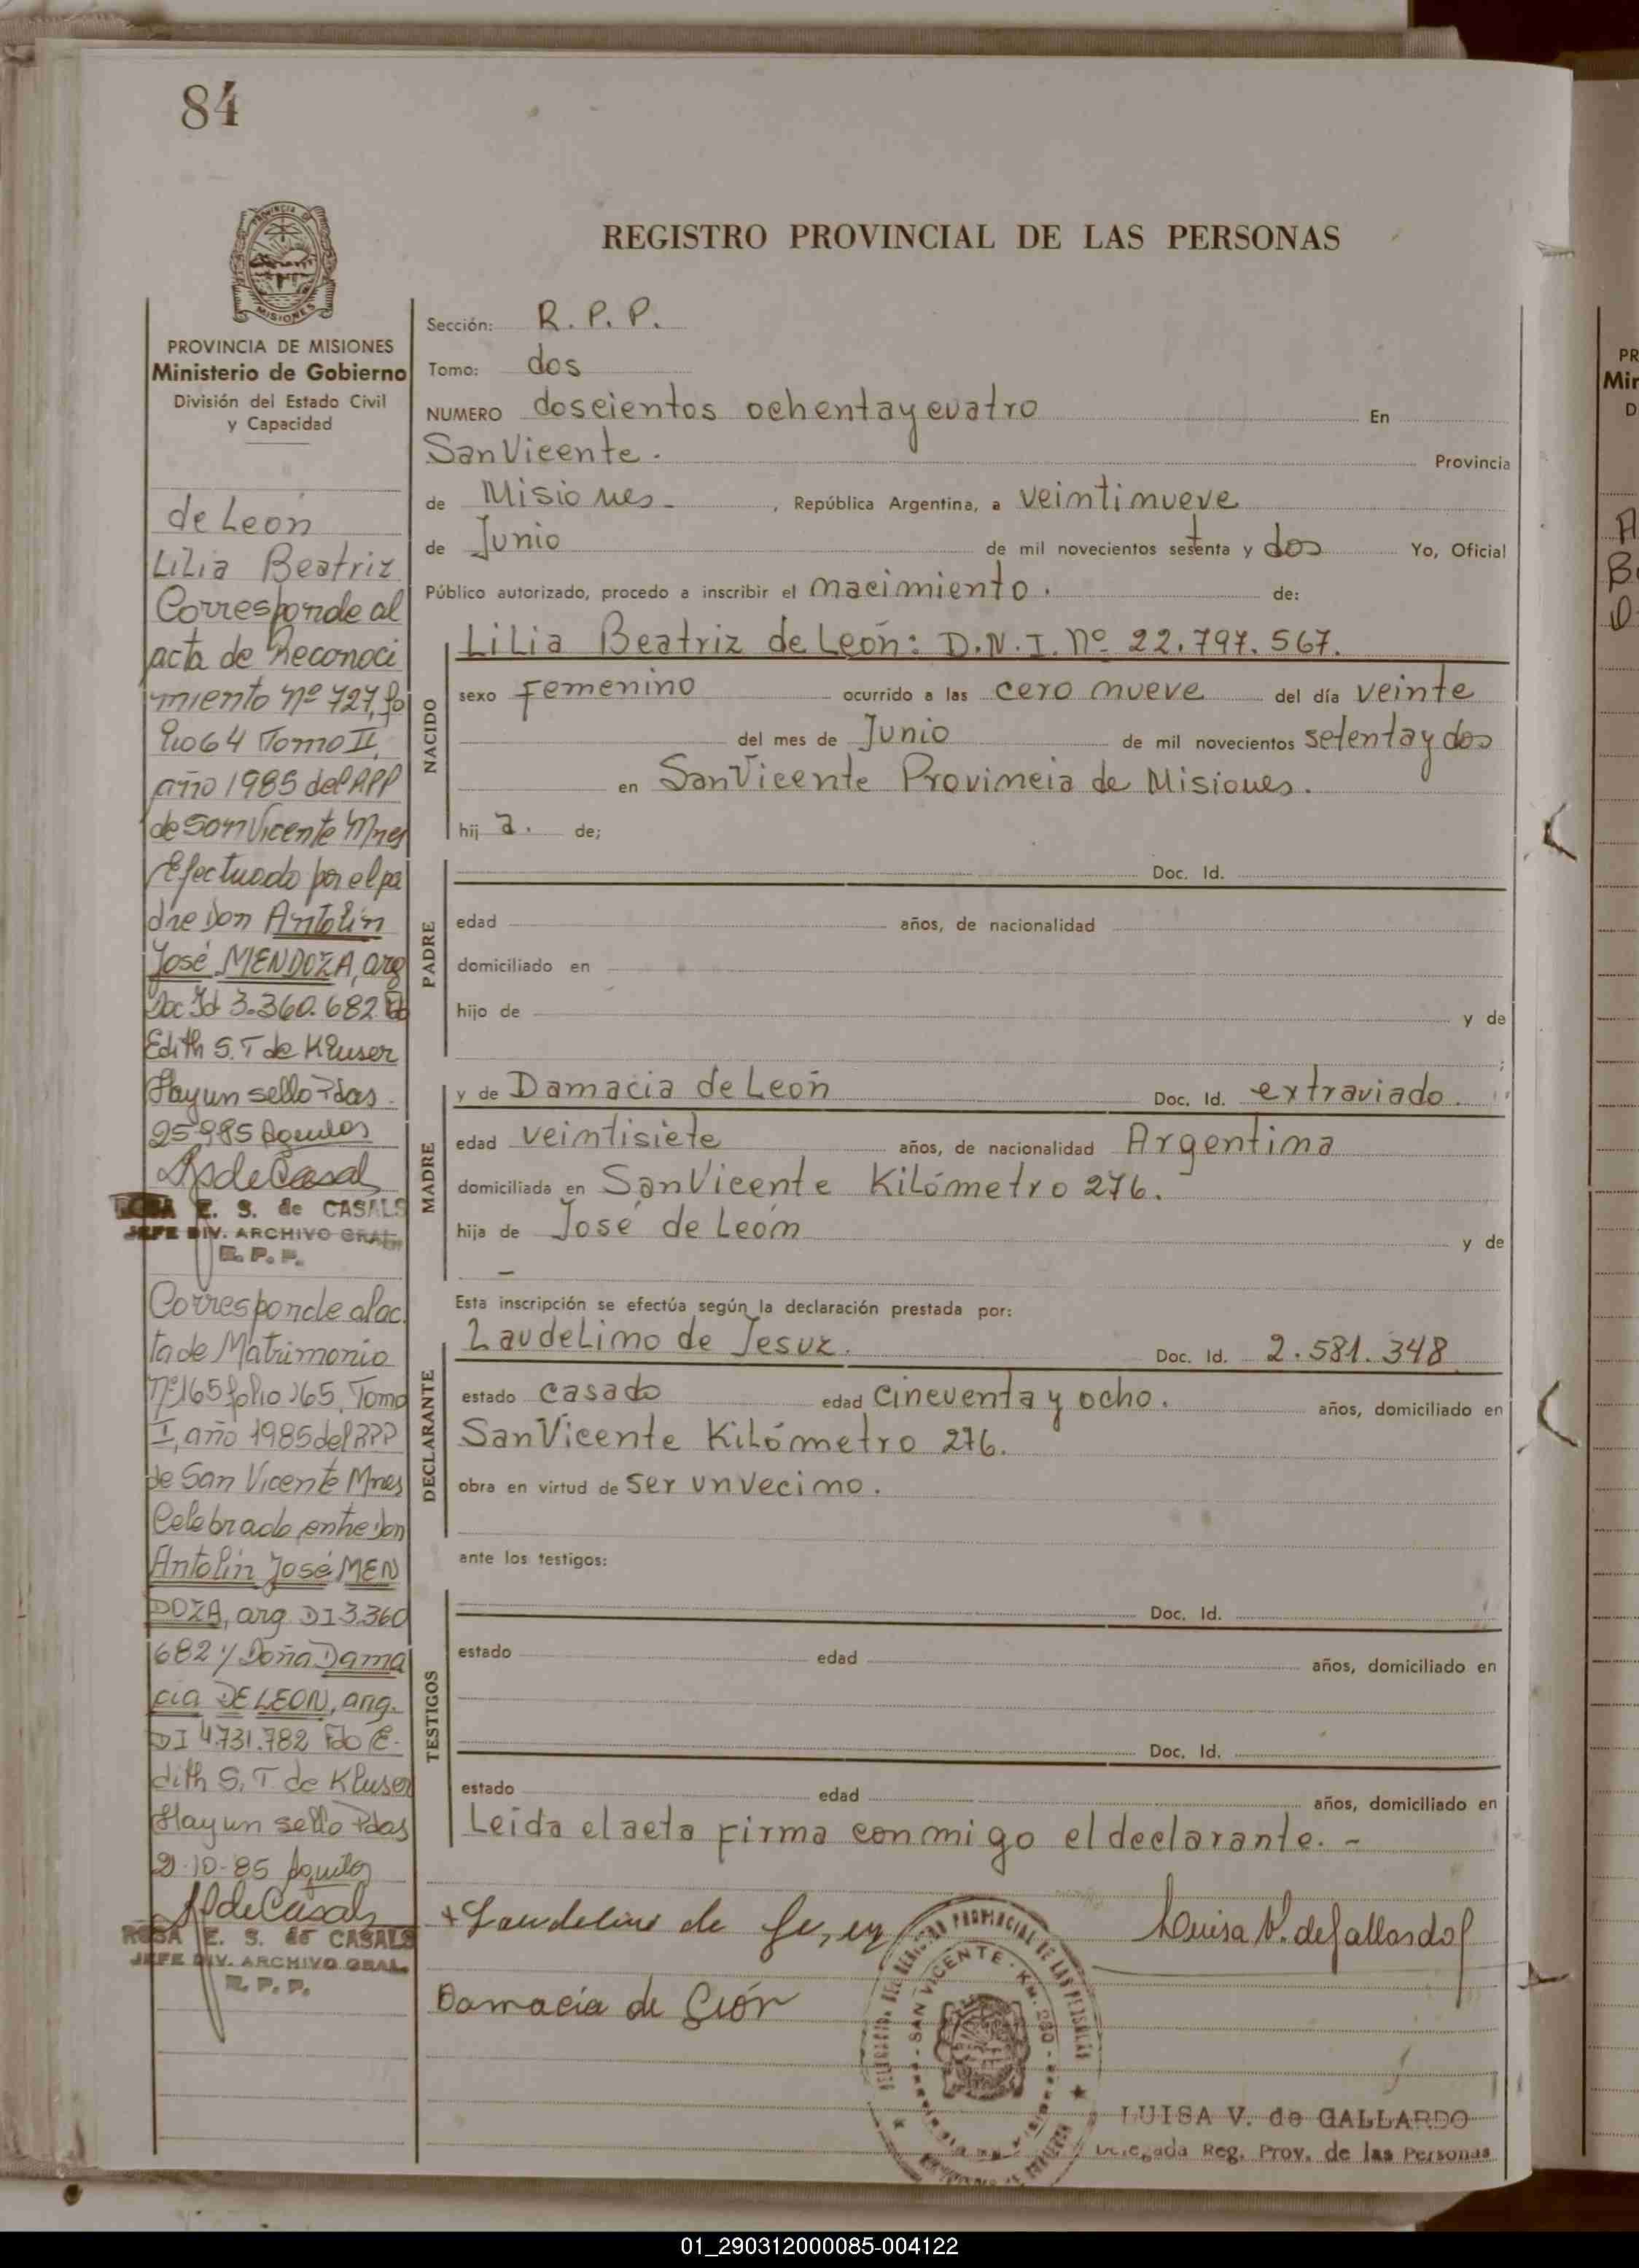 84
PROVINCIA DE
MISIONES
REGISTRO PROVINCIAL DE LAS PERSONAS
PROVINCIA DE MISIONES
Ministerio de Gobierno
División del Estado Civil
y Capacidad
de León
Lilia Beatriz
Corresponde al
acta de Reconoci
miento nº 727, fo
lio 64 Tomo II,
año 1985 del RPP
de San Vicente Mnes
Efectuado por el pa
dre Don Antolín
José MENDOZA, arg
Doc Id 3.360.682 Fdo
Edith S. T de Kluser
Hay un sello Pdas.
25-9-85
ROSA E. S. de CASALS
JEFE DIV. ARCHIVO GRAL.
R. P. P.
Corresponde al ac
ta de Matrimonio
nº 165 folio 165, Tomo
I, año 1985 del RPP
de San Vicente Mnes
Celebrado entre Don
Antolín José MEN
DOZA, arg. DI 3.360
682 y Doña Dama
cia DE LEON, arg.
DI 4.731.782 Fdo E-
dith S. T. de Kluser
Hay un sello Pdas
2-10-85
ROSA E. S. de CASALS
JEFE DIV. ARCHIVO GRAL.
R. P. P.
Sección: R. P. P.
Tomo: dos
NUMERO doscientos ochenta y cuatro En
San Vicente. Provincia
de Misiones , República Argentina, a veintinueve
de Junio de mil novecientos setenta y dos Yo, Oficial
Público autorizado, procedo a inscribir el nacimiento. de:
NACIDO
Lilia Beatriz de León: D.N.I. Nº 22.797.567.
sexo Femenino ocurrido a las cero nueve del día veinte
del mes de Junio de mil novecientos setenta y dos
en San Vicente Provincia de Misiones.
hij a. de;
PADRE
Doc. Id.
edad años, de nacionalidad
domiciliado en
hijo de y de
;
MADRE
y de Damacia de León Doc. Id. extraviado.
edad veintisiete años, de nacionalidad Argentina
domiciliada en San Vicente Kilómetro 276.
hija de José de León y de
–
Esta inscripción se efectúa según la declaración prestada por:
DECLARANTE
Laudelino de Jesuz. Doc. Id. 2.581.348
estado casado edad cincuenta y ocho. años, domiciliado en
San Vicente Kilómetro 276.
obra en virtud de ser un vecino.
ante los testigos:
TESTIGOS
Doc. Id.
estado edad años, domiciliado en
Doc. Id.
estado edad años, domiciliado en
Leída el acta firma conmigo el declarante. -
Laudelino de Luisa V. de Gallardo
Damacia de León
SAN VICENTE - KM. 280
LUISA V. de GALLARDO
Delegada Reg. Prov. de las Personas
PR
Mir
D
01_290312000085-004122